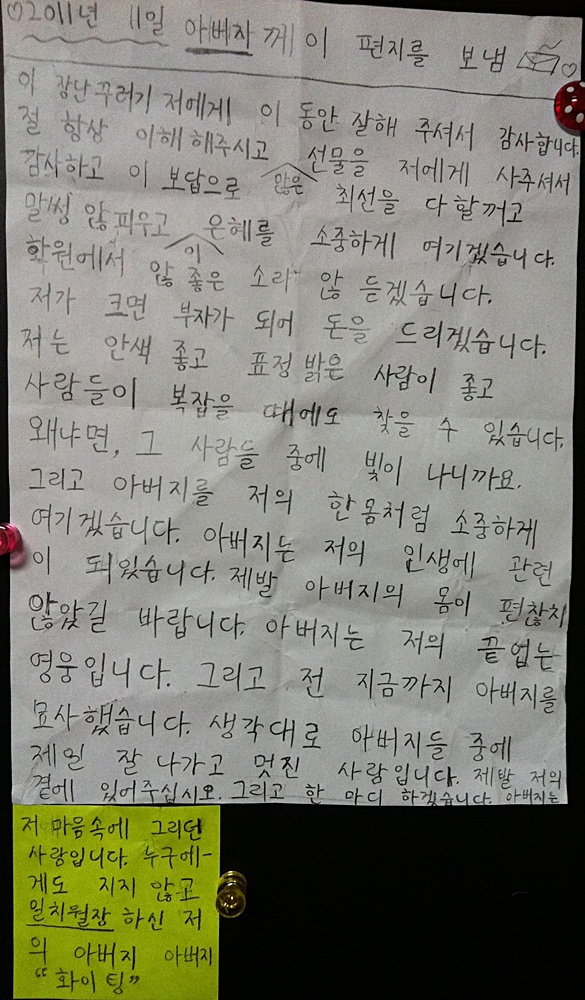 ♡2011년 11일 아버지께 이 편지를 보냄 ♡
이 장난꾸러기 저에게 이 동안 잘해 주셔서 감사합니다.
절 항상 이해해주시고 선물을 저에게 사주셔서
감사하고 이 보답으로 많은 최선을 다할꺼고
말썽 않피우고 은혜를 소중하게 여기겠습니다.
학원에서 이 않 좋은 소리 않 듣겠습니다.
저가 크면 부자가 되어 돈을 드리겠습니다.
저는 안색 좋고 표정 밝은 사람이 좋고
사람들이 복잡을 때에도 찾을 수 있습니다.
왜냐면, 그 사람들 중에 빛이 나니까요.
그리고 아버지를 저의 한몸처럼 소중하게
여기겠습니다. 아버지는 저의 인생에 관련
이 되있습니다. 제발 아버지의 몸이 편찮치
않았길 바랍니다. 아버지는 저의 끝없는
영웅입니다. 그리고 전 지금까지 아버지를
묘사했습니다. 생각대로 아버지들 중에
제일 잘 나가고 멋진 사람입니다. 제발 저의
곁에 있어주십시오. 그리고 한 마디 하겠습니다. 아버지는
저 마음속에 그리던
사람입니다. 누구에-
게도 지지 않고
일취월장 하신 저
의 아버지 아버지
"화이팅"